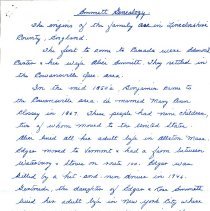 Summett Genealogy
The origins of the family are in Lincolnshire
County, England.
The first to come to Canada were Edward
Carter & his wife Alice Summett. They settled in
the Bowmanville Que. area.
In the mid 1850s Benjamin came to
the Bowmanville area. He married Mary Ann
in 1867. These people had nine children,
two of whom moved to the United States.
Alice lived all her adult life in Allston Mass.
Edgar moved to Vermont & had a farm between
Waterbury & Stowe on route 100. Edgar was
killed by a hit-and-run driver in 1946.
Gertrude, the daughter of Edgar & Rose Summett
lived her adult life in New York City where